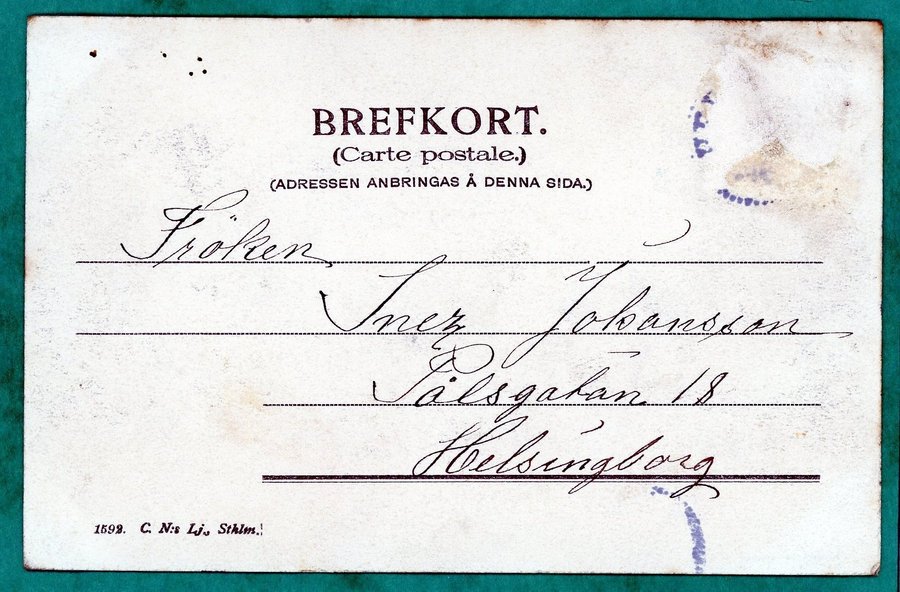 BREFKORT.
(Carte postale.)
(ADRESSEN ANBRINGAS Å DENNA SIDA.)
Fröken
Inez Johansson
Pålsgatan 18
Helsingborg
1592. C. N:s Lj., Sthlm.